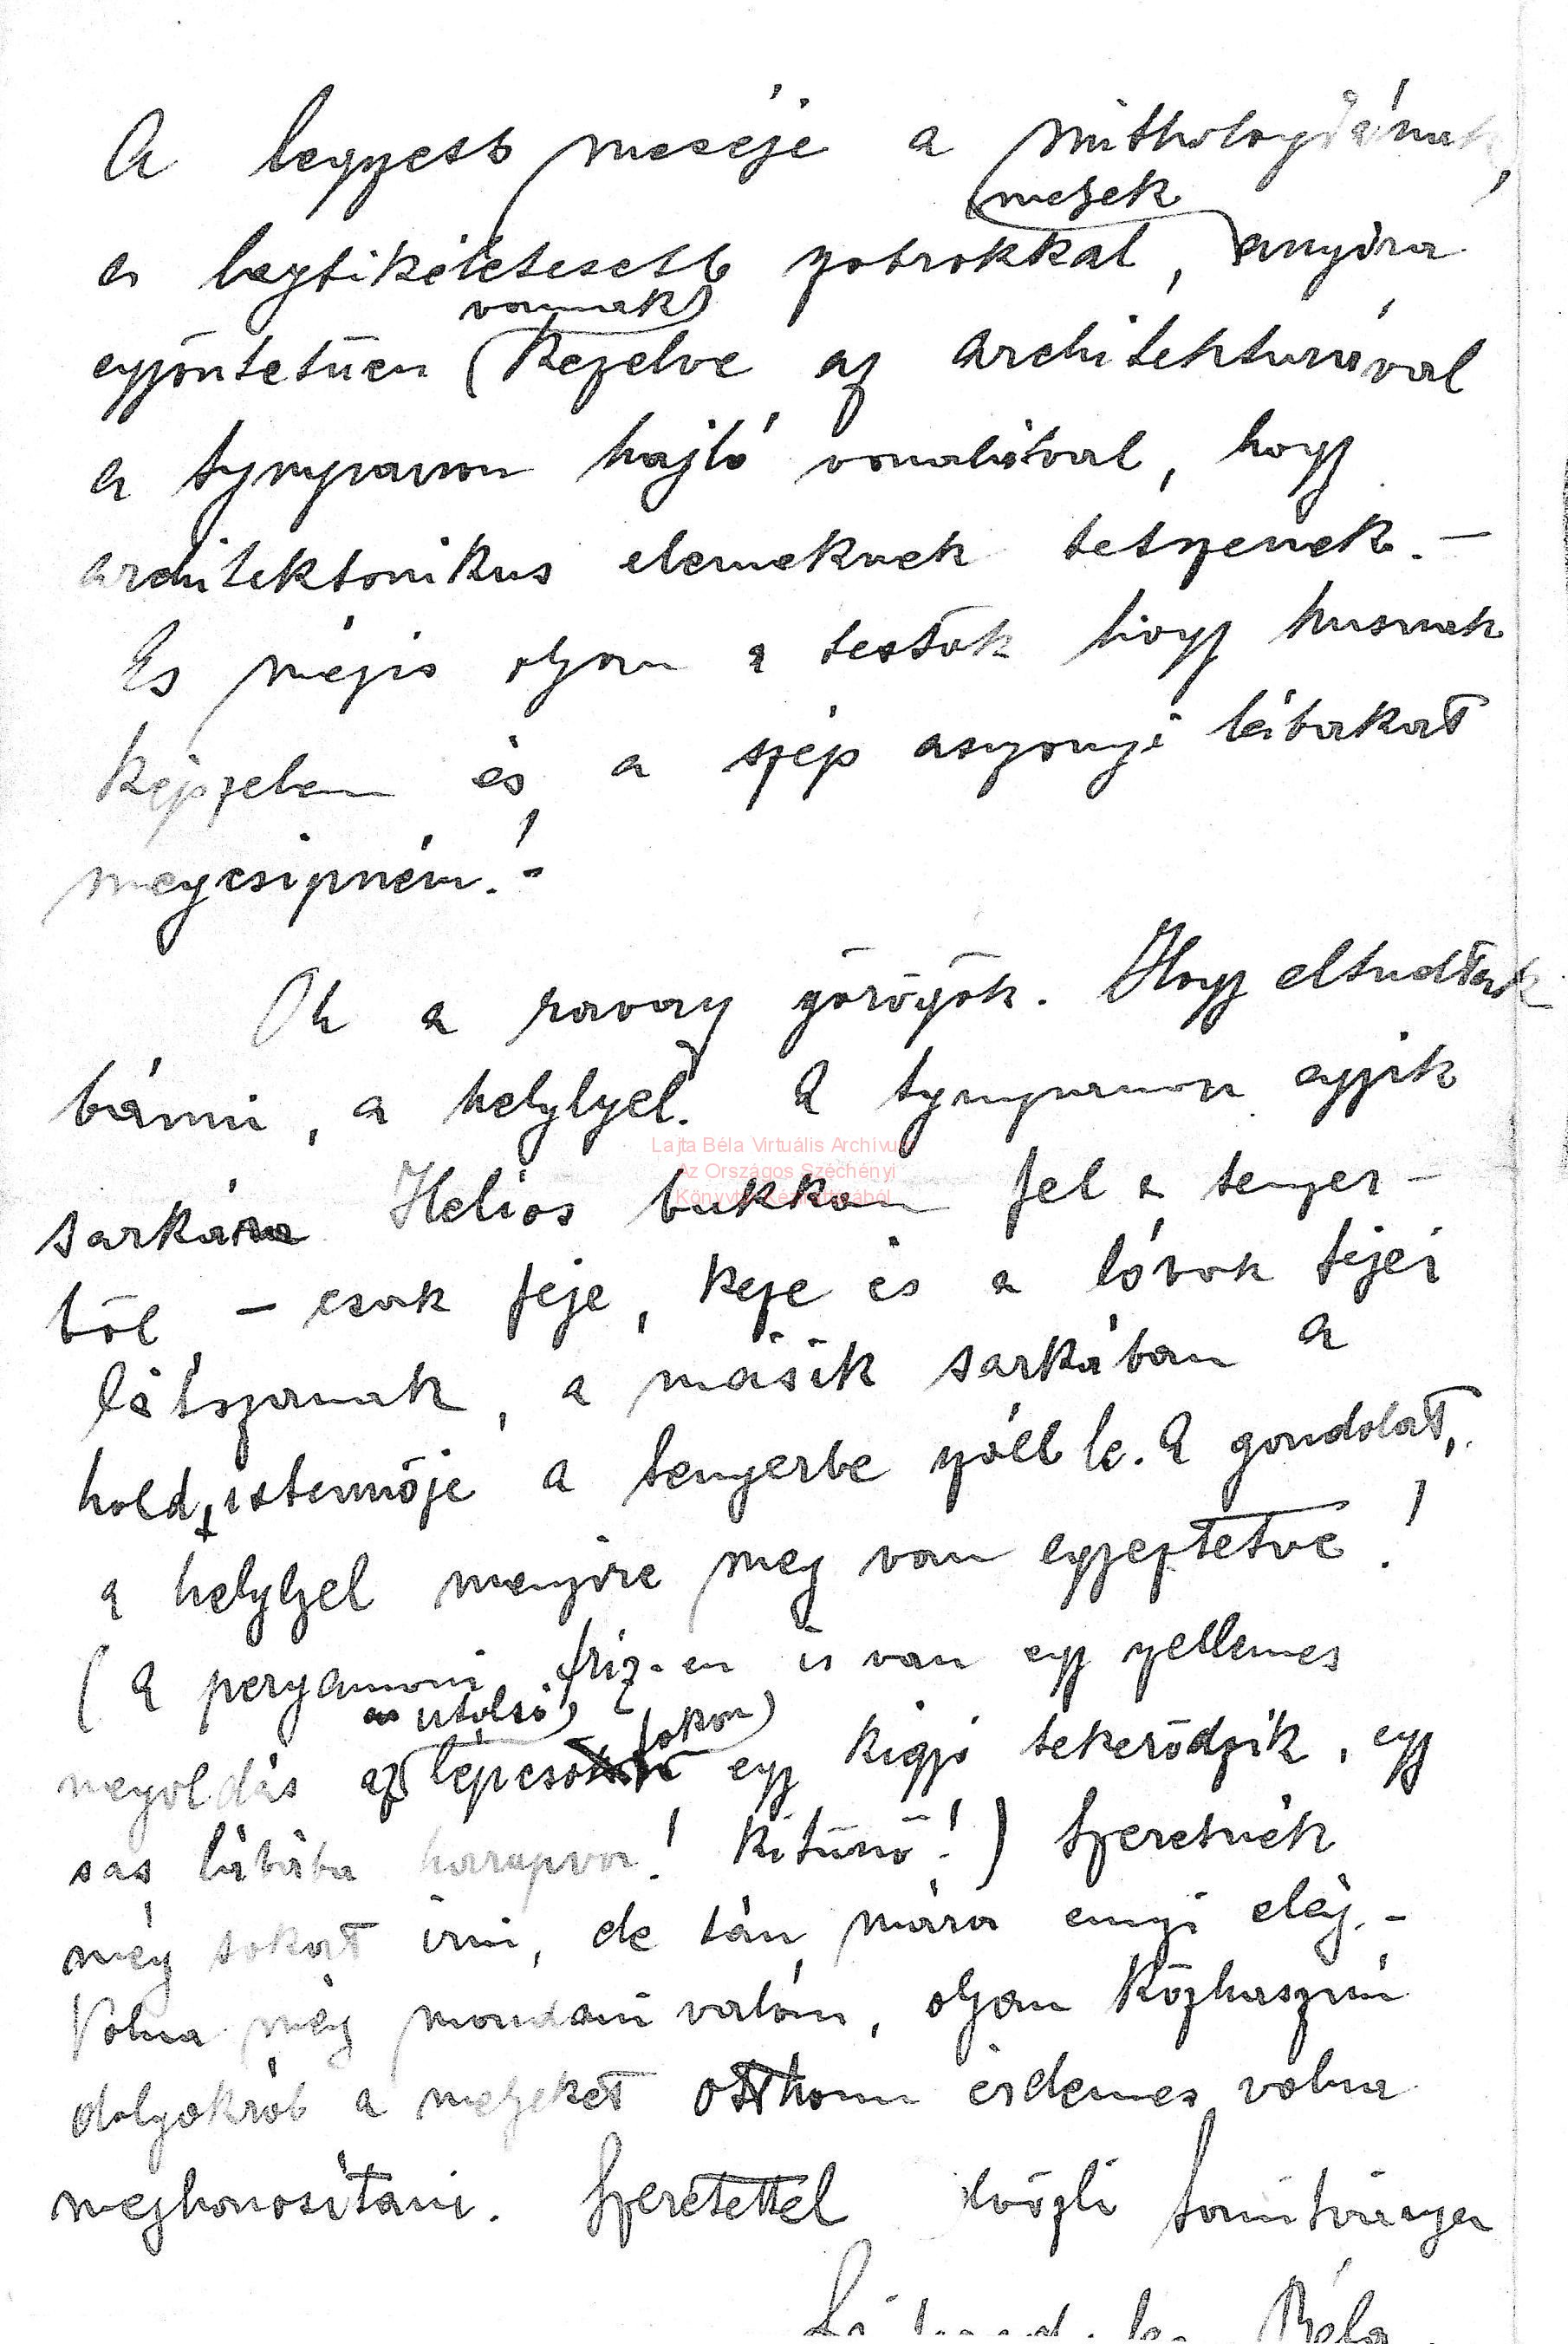 A legszebb meséje a mithologiának,
a legtökéletesebb szobrokkal, melyek anyira
egyöntetüen vannak kezelve az architekturával
a tympanon hajló vonalával, hogy
architektonikus elemeknek tetszenek.–
És mégis olyan a testök hogy husnak
képzelem és a szép asszonyi lábakat
megcsipném!–
Oh a ravasz görögök. Hogy eltudtak
bánni, a helylyel. A tympanon egyik
sarkára Helios bukkan fel a tenger–
ből – csak feje, keze és a lovak fejei
látszanak, a másik sarkában a
hold istennője a tengerbe száll le. A gondolat,
a helylyel menyire meg van egyeztetve!
(A pergamoni friz-en is van egy szellemes
megoldás az utolsó lépcsőfokon egy kigyó tekerődzik, egy
sas lábába harapva! Kitünő!) Szeretnék
még sokat irni, de tán mára enyi elég.–
Volna még mondani valóm, olyan közhasznú
dolgokról a melyeket otthonn érdemes volna
meghonositani. Szeretettel üdvözli tanitványa
Béla
Lajta Béla Virtuális Archívum
Az Országos Széchényi
Könyvtár Kézirattárából